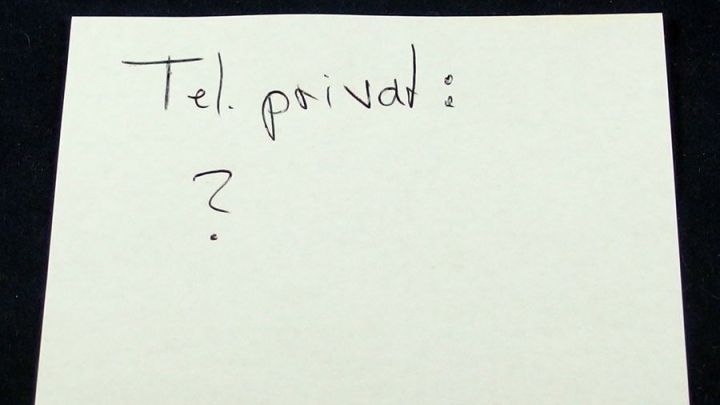 Tel. privat:
?